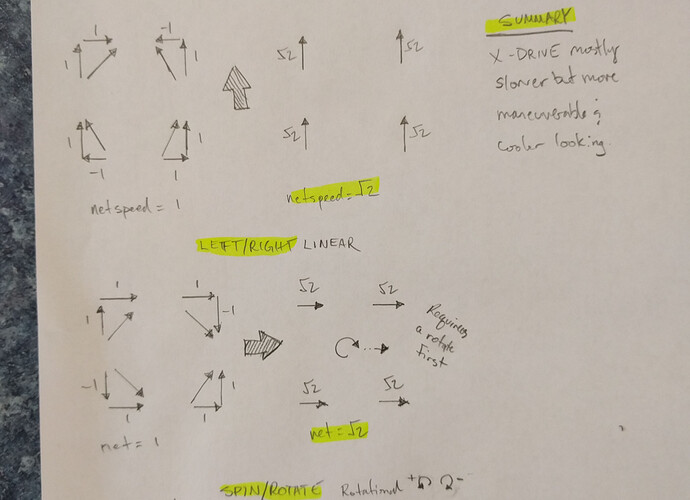 SUMMARY
X-DRIVE mostly
slower but more
maneuverable &
cooler looking.
1 -1
1 1
√2 √2
1 1
-1 1
√2 √2
netspeed = 1
netspeed = √2
LEFT/RIGHT LINEAR
1 1
1 -1
√2 √2
Requires
a rotate
first
-1 1
1 1
√2 √2
net = 1
net = √2
SPIN/ROTATE Rotational + -